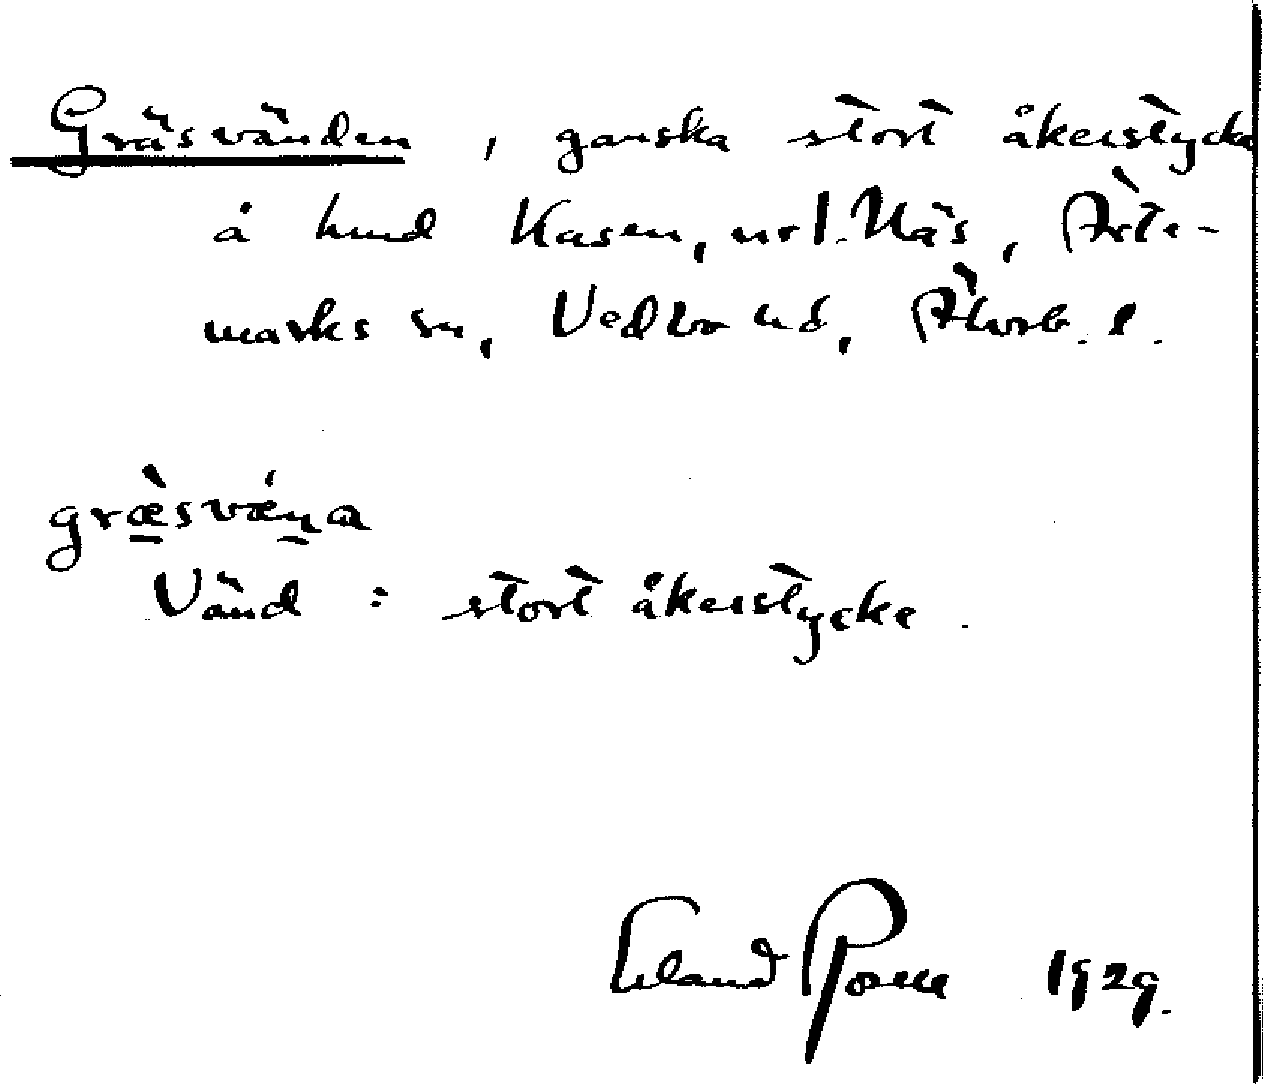 Gräsvänden, ganska stort åkerstycke
å hmd Kasen, nr 1. Näs, Årte-
marks sn, Vedbo hd, Älvsb. l.
græ̀svǽṇa
Vänd = stort åkerstycke.
Erland Rosell 1929.